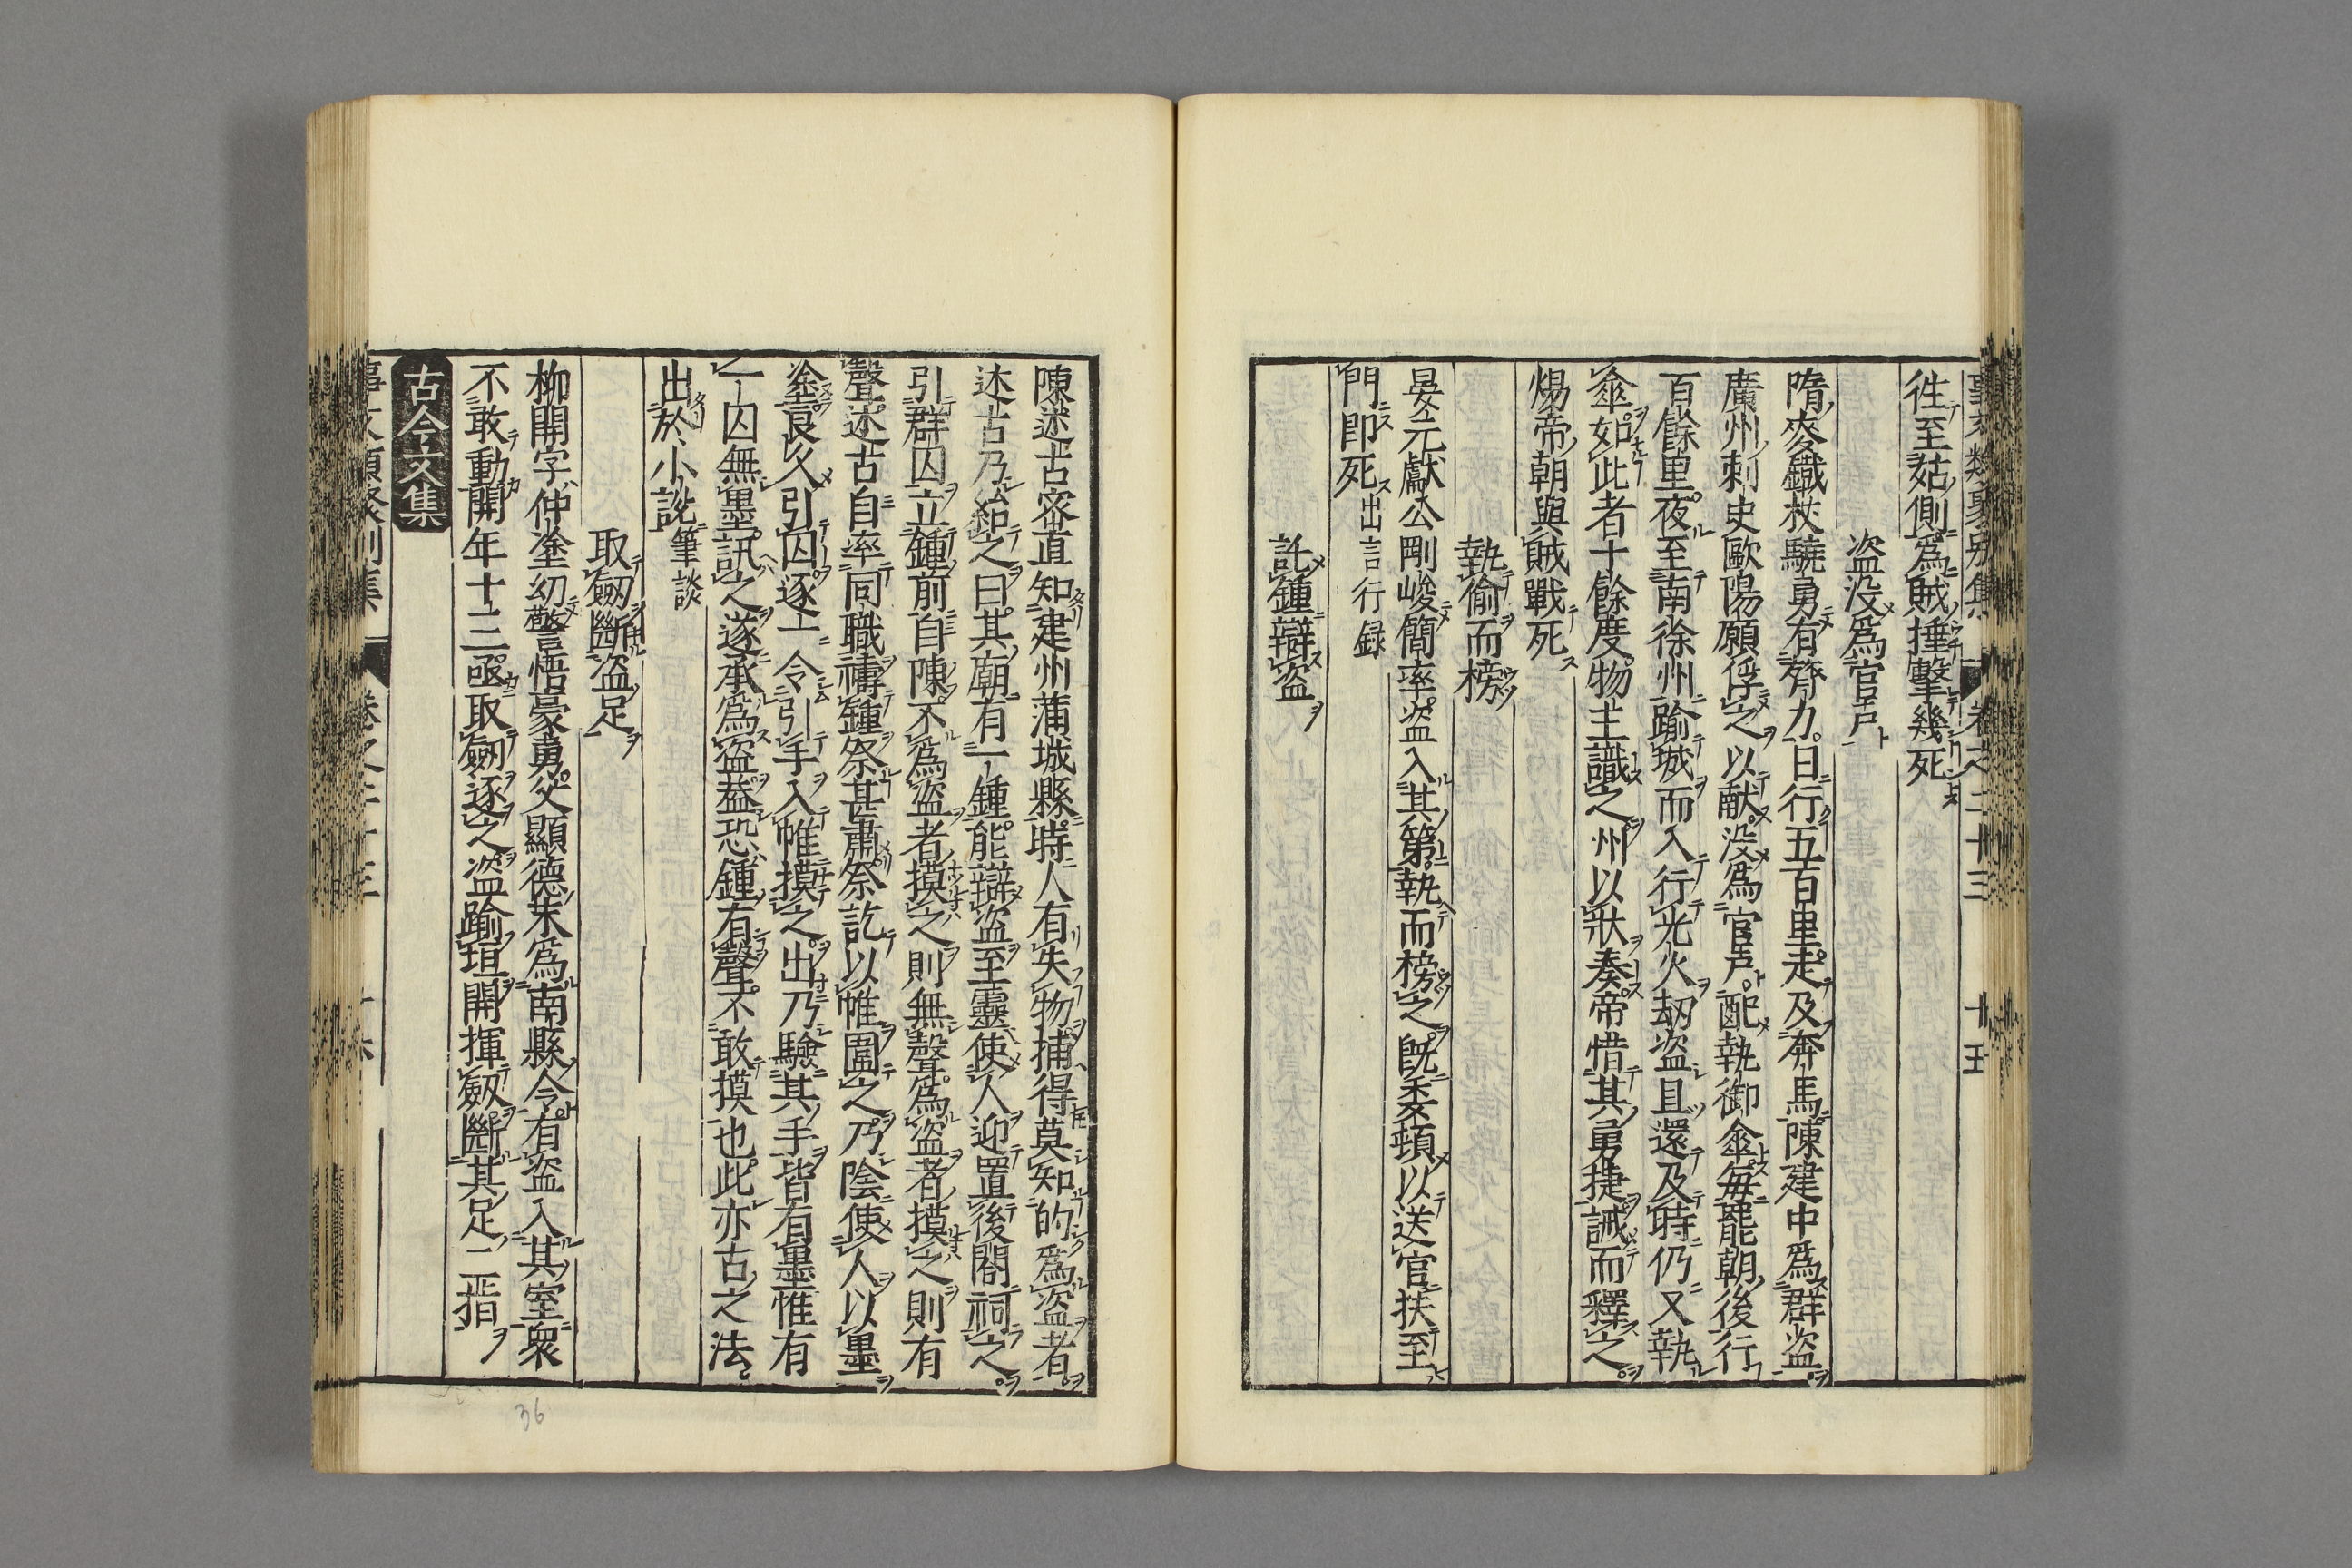 事文類聚別集 卷之二十三 十五
徃至姑側爲賊捶擊幾死
盗没爲官戸
隋麥鐡杖驍勇有膂力日行五百里走及奔馬陳建中爲群盗
廣州刺史歐陽願俘之以献没爲官戸配執御傘毎罷朝後行
百餘里夜至南徐州踰城而入行光火刼盗且還及時仍又執
傘如此者十餘度物主識之州以狀奏帝惜其勇捷誡而釋之
煬帝朝與賊戰死
執偷而榜
晏元獻公剛峻簡率盗入其第執而榜之旣委頓以送官扶至
門即死 出言行録
託鍾辯盗
陳述古密直知建州蒲城縣時人有失物捕得莫知的爲盗者
述古乃紿之曰其廟有一鍾能辯盗至靈使人迎置後閣祠之
引群囚立鍾前自陳不爲盗者摸之則無聲爲盗者摸之則有
聲述古自率同職禱鍾祭甚肅祭訖以帷圍之乃陰使人以墨
塗良久引囚逐一令引手入帷摸之出乃驗其手皆有墨惟有
一囚無墨訊之遂承爲盗葢恐鍾有聲不敢摸也此亦古之法
出於小說 筆談
取劔斷盗足
柳開字仲塗幼警悟豪勇父顯德末爲南縣令有盗入其室衆
不敢動開年十三亟取劔逐之盗踰垣開揮劔斷其足二指
古今文集
事文類聚別集 卷之二十三
36